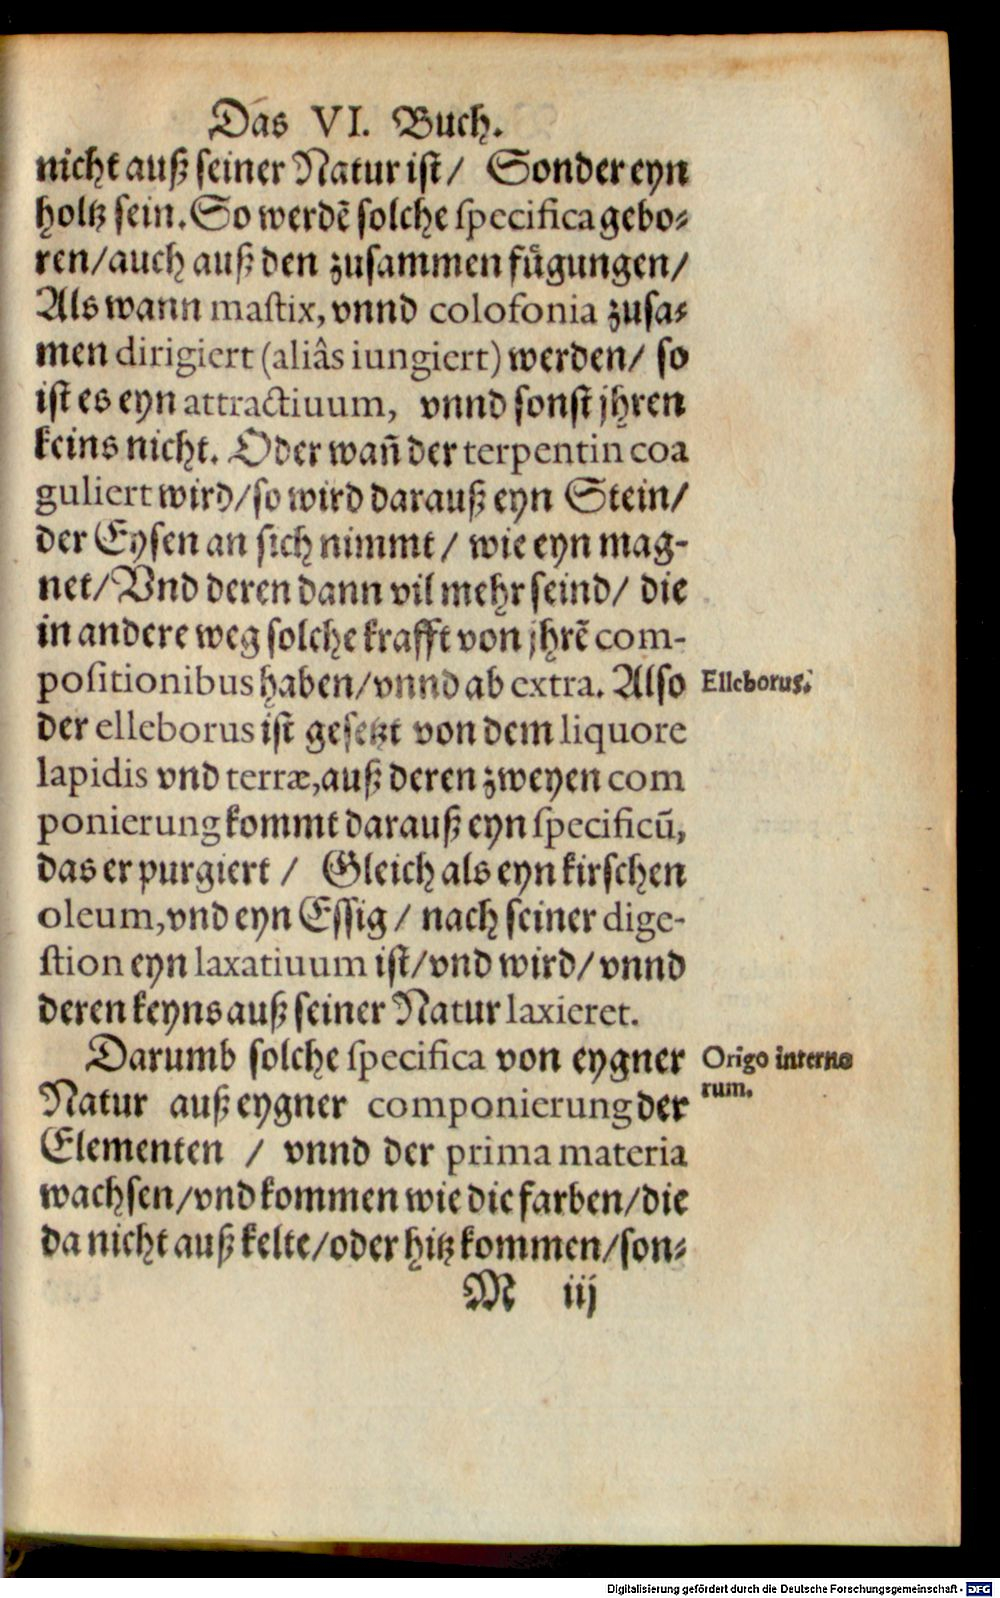 Das VI. Buch.
nicht auß seiner Natur ist/ Sonder eyn
holtz sein. So werdẽ solche specifica gebo⸗
ren/auch auß den zusammen fuͤgungen/
Als wann mastix, vnnd colofonia zusa⸗
men dirigiert (aliâs iungiert) werden/ so
ist es eyn attractiuum, vnnd sonst jhren
keins nicht. Oder wañ der terpentin coa
guliert wird/so wird darauß eyn Stein/
der Eysen an sich nimmt/ wie eyn mag-
net/Vnd deren dann vil mehr seind/ die
in andere weg solche krafft von jhrẽ com-
positionibus haben/vnnd ab extra. Also
Elleborus.
der elleborus ist gesetzt von dem liquore
lapidis vnd terræ,auß deren zweyen com
ponierung kommt darauß eyn specificũ,
das er purgiert / Gleich als eyn kirschen
oleum,vnd eyn Essig/ nach seiner dige-
stion eyn laxatiuum ist/vnd wird/vnnd
deren keyns auß seiner Natur laxieret.
Darumb solche specifica von eygner
Origo interno
rum.
Natur auß eygner componierung der
Elementen / vnnd der prima materia
wachsen/vnd kommen wie die farben/die
da nicht auß kelte/oder hitz kommen/son⸗
M iij
Digitalisierung gefördert durch die Deutsche Forschungsgemeinschaft - DFG